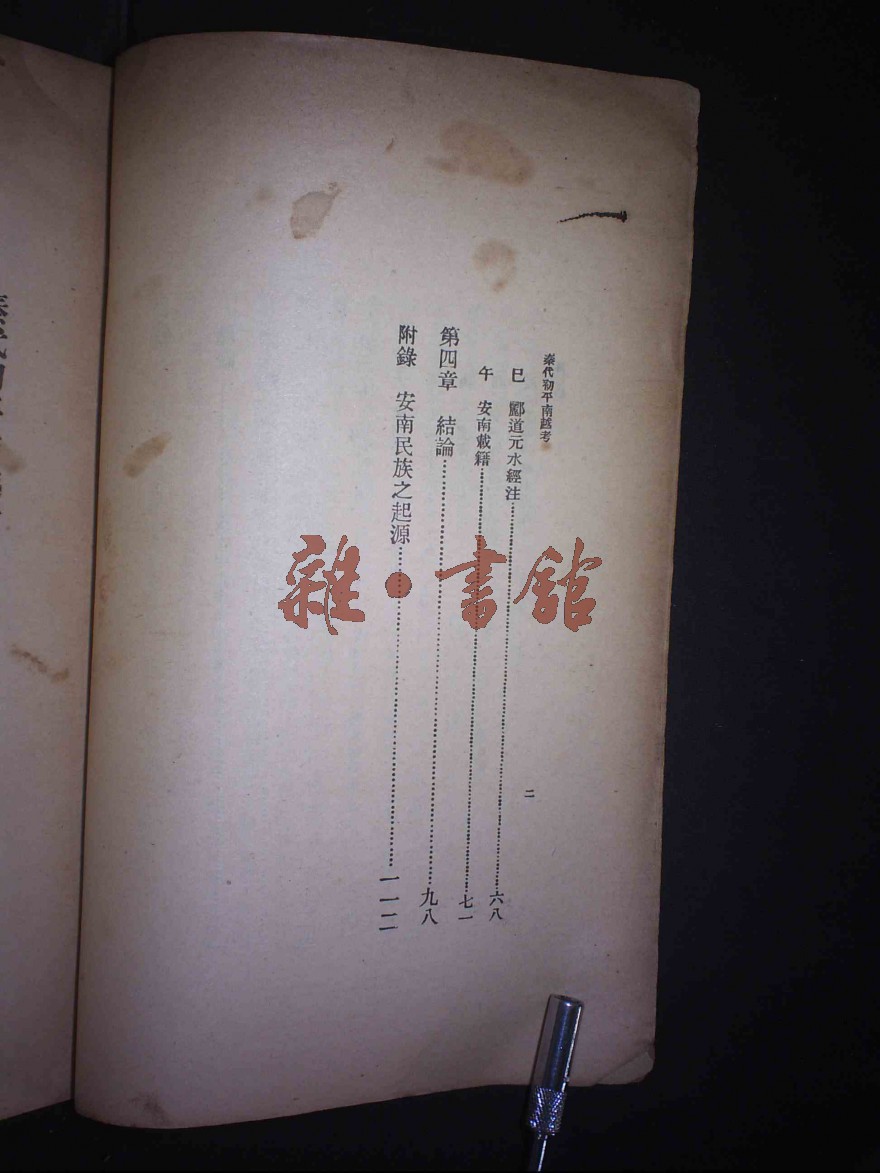 秦代初平南越考
二
巳 酈道元水經注 六八
午 安南載籍 七一
第四章 結論 九八
附錄 安南民族之起源 一一二
雜·書館